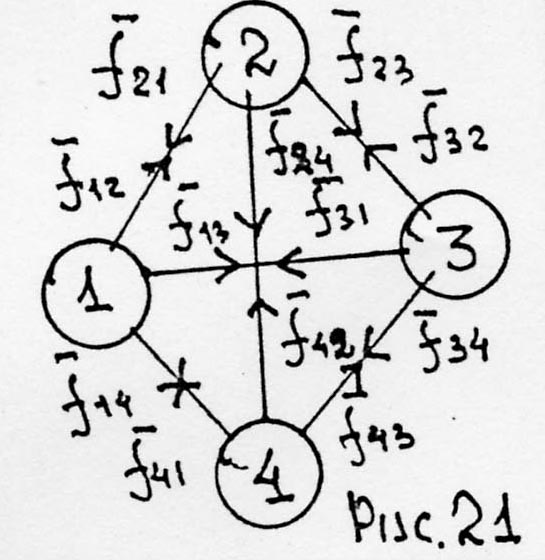 f̄21
2
f̄23
f̄12
f̄24
f̄32
f̄13
f̄31
1
3
f̄14
f̄42
f̄34
f̄41
4
f̄43
Рис. 21